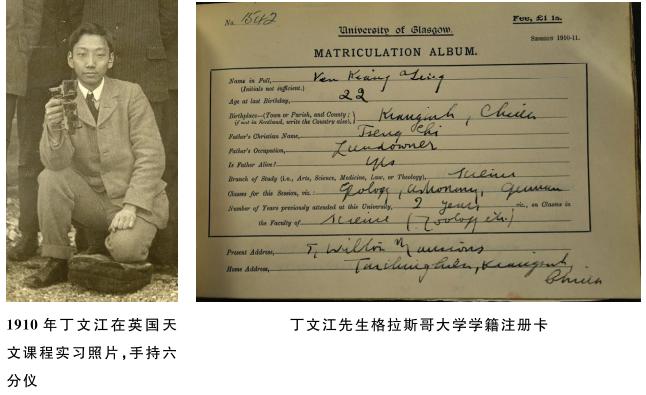 No. 1542
University of Glasgow.
Fee, £1 1s.
SESSION 1910-11.
MATRICULATION ALBUM.
Name in Full, Ven Kiang Ting
(Initials not sufficient.)
Age at last Birthday, 22
Birthplace—(Town or Parish, and County; if not in Scotland, write the Country also), Kiangsuh, China
Father's Christian Name, Tseng Chi
Father's Occupation, Landowner
Is Father Alive? yes
Branch of Study (i.e., Arts, Science, Medicine, Law, or Theology), Science
Classes for this Session, viz.: Geology, Astronomy, German
Number of Years previously attended at this University, 2 years viz., on Classes in
the Faculty of Science (Zoology etc.)
Present Address, 7, Wilton Mansions
Home Address, Kiangsuh,
China
1910 年丁文江在英国天
文课程实习照片,手持六
分仪
丁文江先生格拉斯哥大学学籍注册卡